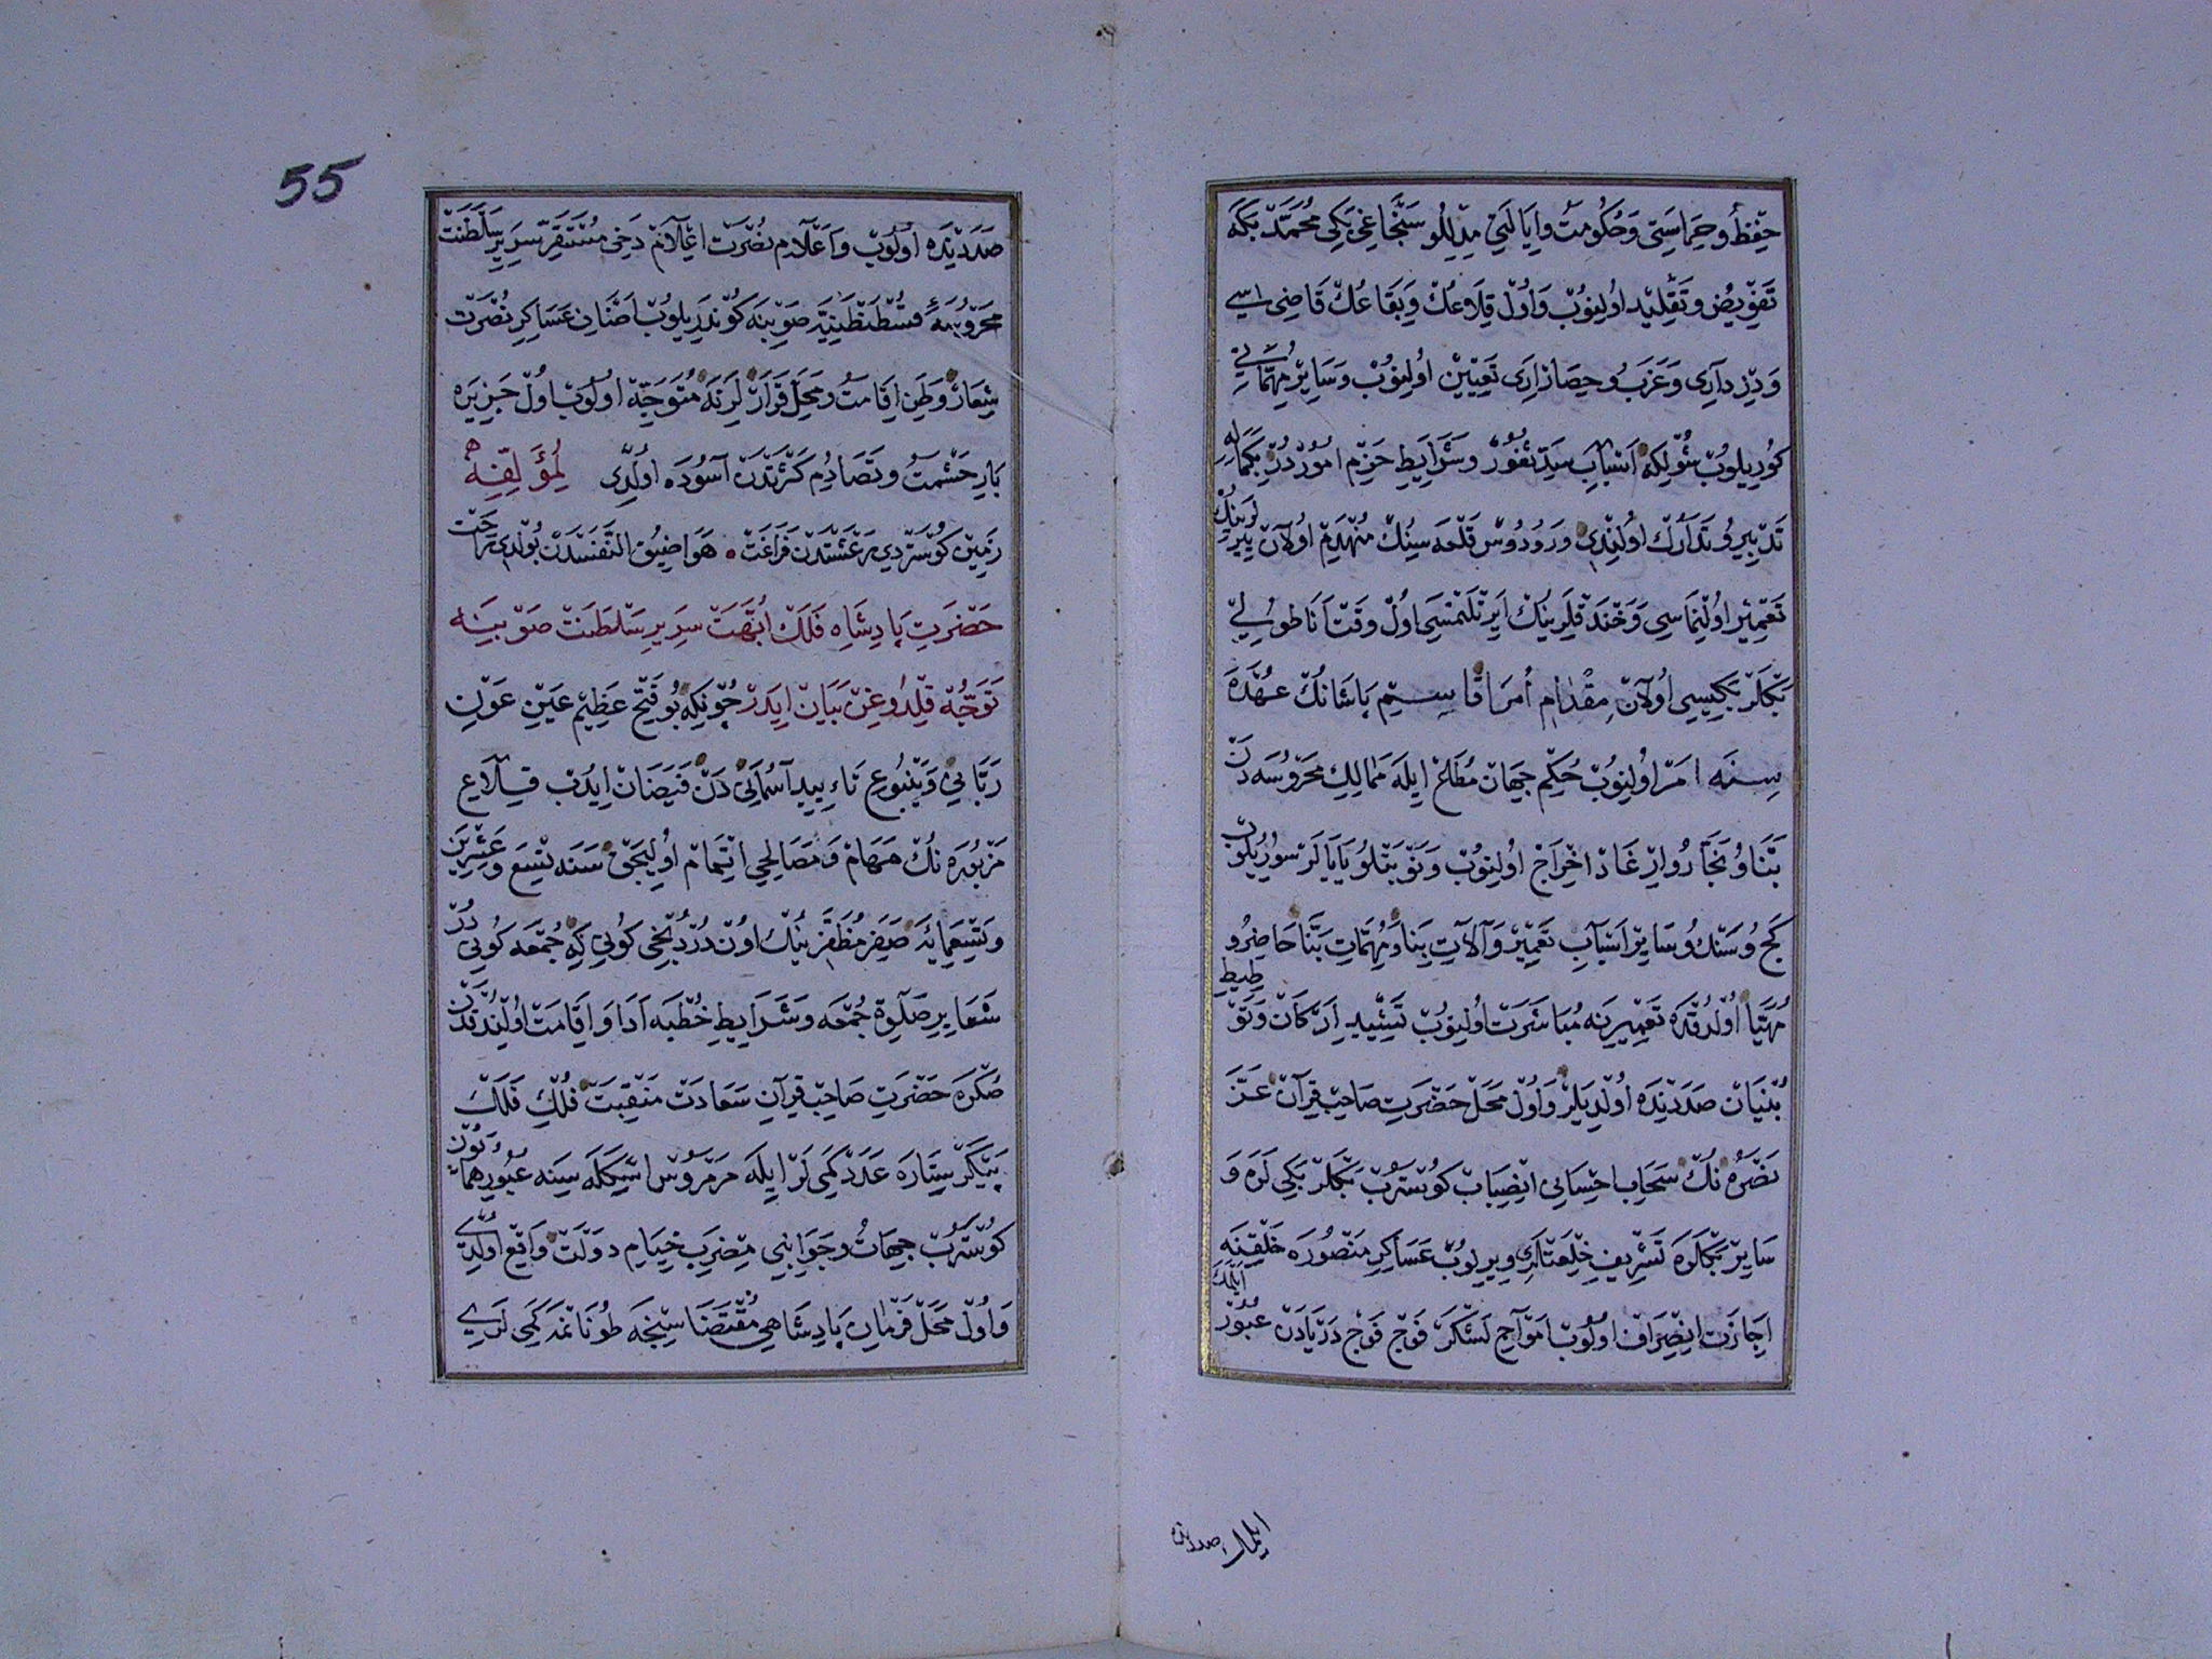 حفظ و حراستی و حکومت و ایالتی مدللو سنجاغی بکی محمد بکه
تفویض و تقلید اولنوب و اول قلاعک و بقاعک قاضیسی
و دزداری و عزب و حصارلری تعیین اولنوب و سایر مهماتی
کوریلوب شولکه اسباب سد ثغور و شرایط حزم اموردر بکماله
تدبیر و تدارک اولندی و رودوس قلعه سینک منهدم اولان یرلرینک
تعمیر اولنماسی و خندقلرینک ایرتلنمسی اول وقت اناطولی
بکلر بکیسی اولان مقدام امرا قاسم پاشانک عهده
سنه امر اولنوب حکم جهان مطاع ایله ممالک محروسه دن
بنا و نجار و ایرغاد اخراج اولنوب و نوبتلو یایالر سوریلوب
کج و سنک و سایر اسباب تعمیر و آلات بنا و مهمات بنا حاضر و
مهیا اولدقده تعمیرینه مباشرت اولنوب تشیید ارکان و توطید
بنیان صددنده اولدیلر و اول محل حضرت صاحب قران عز
نصره نک سحاب احسانی انصباب کوسترب بکلر بکی لره و
سایر بکلره تشریف خلعتلری ویریلوب عساکر منصوره خلقنه
اجازت انصراف اولوب امواج لشکر فوج فوج دریادن عبور ایلمک
ایلمک صددنده
55
صددنده اولوب و اعلام نصرت اعلام دخی مستقر سریر سلطنت
محروسۀ قسطنطنیه صوبنه کوندریلوب اصناف عساکر نصرت
شعار وطن اقامت و محل قرارلرنه متوجه اولوب اول جزیره
بار حشمت و تصادم کثرتدن آسوده اولدی لمؤلفه
زمین کوستردی رعشتدن فراغت • هوا ضیق التنفسدن بولدی راحت
حضرت پادشاه فلک ابهت سریر سلطنت صوبینه
توجه قلدوغن بیان ایدر چونکه بو فتح عظیم عین عون
ربانی و ینبوع تایید آسمانی دن فیضان ایدب قلاع
مزبوره نک مهام و مصالحی اتمام اولیجق سنه تسع و عشرین
و تسعمائه صفر مظفرینک اون دردنجی کونی که جمعه کونی در
شعایر صلوة جمعه و شرایط خطبه ادا و اقامت اولندقدن
صکره حضرت صاحب قران سعادت منقبت فلک فلک
پیکر ستاره عدد کمی لر ایله مرمروس اسکله سینه عبور همایون
کوسترب جهات و جوانبی مضرب خیام دولت واقع اولدی
و اول محل فرمان پادشاهی مقتضاسنجه طونانمه کمی لری